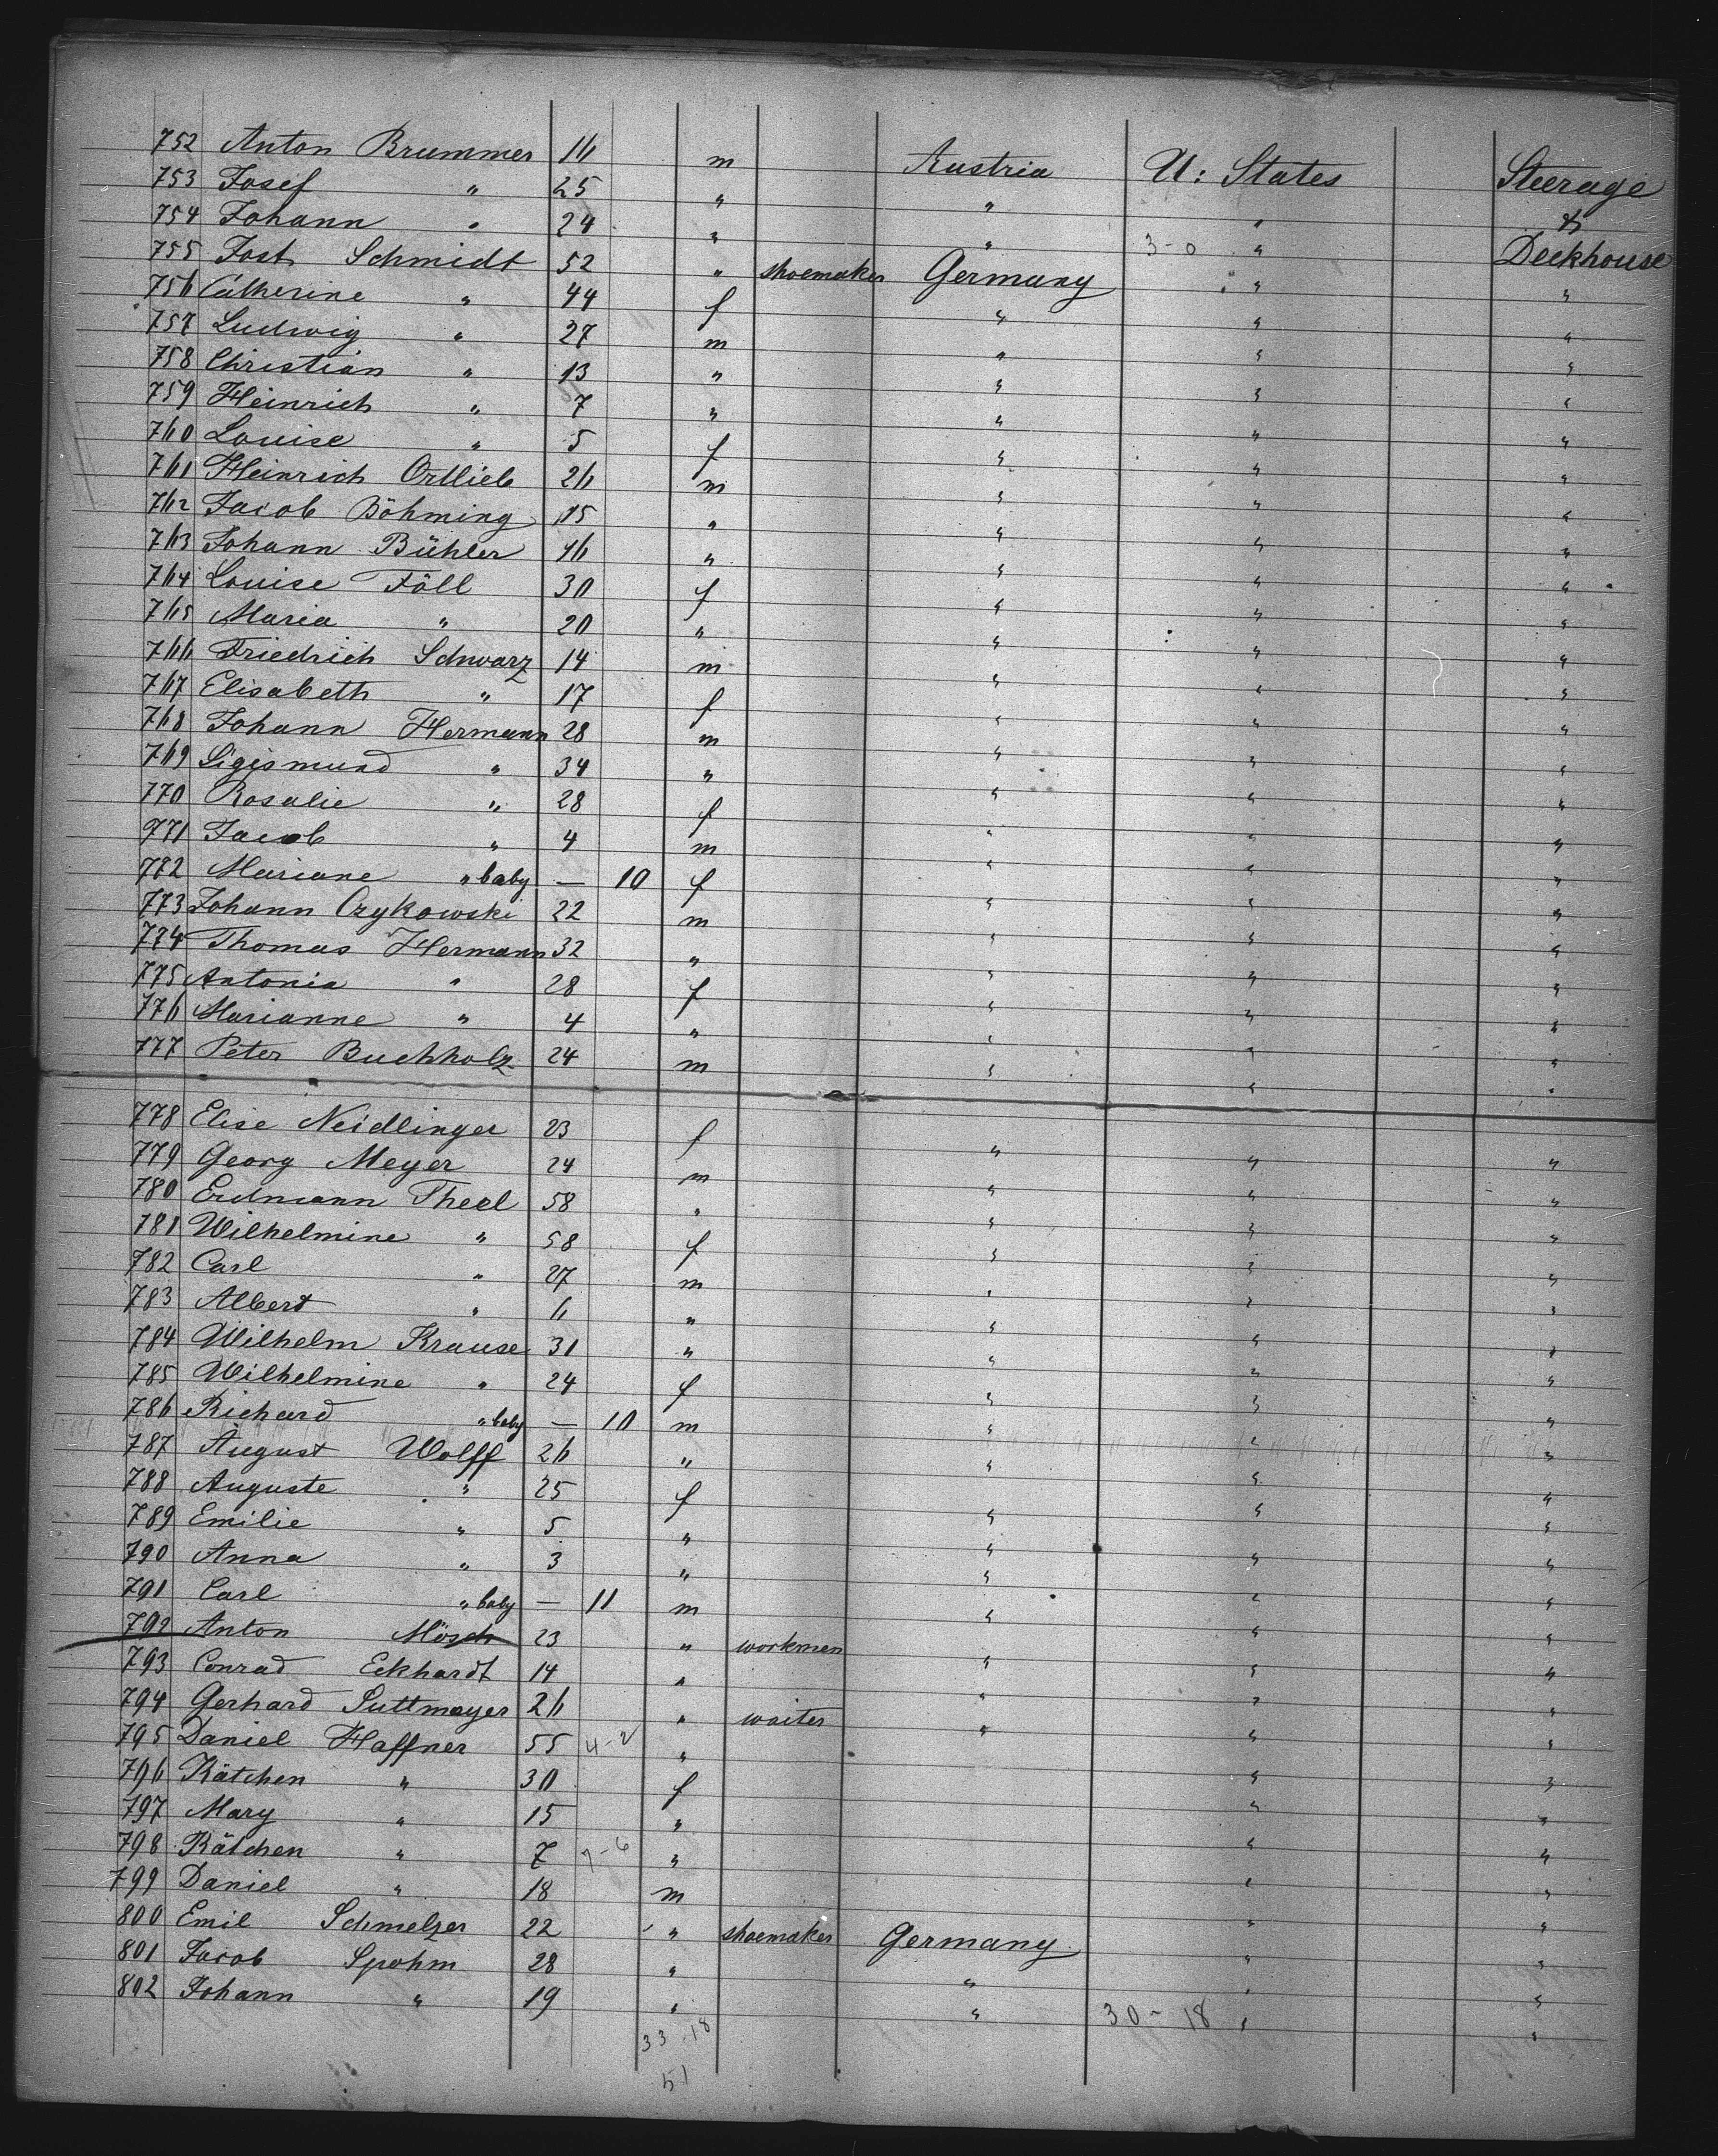 752 Anton Brummer 16 m Austria U: States Steerage
753 Josef " 25 " " " &
754 Johann " 24 " " 3-0 " Deckhouse
755 Jost Schmidt 52 " shoemaker Germany " "
756 Catherine " 44 f " " "
757 Ludwig " 27 m " " "
758 Christian " 13 " " " "
759 Heinrich " 7 " " " "
760 Louise " 5 f " " "
761 Heinrich Ortlieb 26 m " " "
762 Jacob Böhming 15 " " " "
763 Johann Bühler 46 " " " "
764 Louise Föll 30 f " " "
765 Maria " 20 " " " "
766 Friedrich Schwarz 14 m " " "
767 Elisabeth " 17 f " " "
768 Johann Hermann 28 m " " "
769 Sigismund " 34 " " " "
770 Rosalie " 28 f " " "
771 Jacob " 4 m " " "
782 Mariane " baby — 10 f " " "
773 Johann Czykowski 22 m " " "
774 Thomas Hermann 32 " " " "
775 Antonia " 28 f " " "
776 Marianne " 4 " " " "
777 Peter Buchholz 24 m " " "
778 Elise Neidlinger 23 f " " "
779 Georg Meyer 24 m " " "
780 Erdmann Theel 58 " " " "
781 Wilhelmine " 58 f " " "
782 Carl " 27 m " " "
783 Albert " 6 " " " "
784 Wilhelm Krause 31 " " " "
785 Wilhelmine " 24 f " " "
786 Richard " baby — 10 m " " "
787 August Wolff 26 " " " "
788 Auguste " 25 f " " "
789 Emilie " 5 " " " "
790 Anna " 3 " " " "
791 Carl " baby — 11 m " " "
792 Anton Mösch 23 " workmen " " "
793 Conrad Eckhardt 14 " " " "
794 Gerhard Suttmayer 26 " waiter " " "
795 Daniel Haffner 55 4-2 " " "
796 Kätchen " 30 f " "
797 Mary " 15 " " "
798 Kätchen " 7 7-6 " " "
799 Daniel " 18 m " "
800 Emil Schmelzer 22 " shoemaker Germany " "
801 Jacob Spohm 28 " " " "
802 Johann " 19 " " 30-18 " "
33-18
51